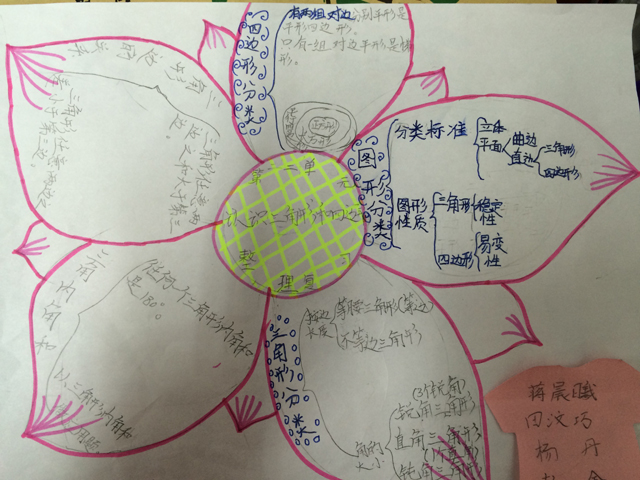 第二单元
认识三角形和四边形
整理复习
四边形分类
有两组对边分别平行是
平行四边形。
只有一组对边平行是梯
形。
正方形
长方形
图形分类
分类标准
立体
平面
曲边
直边
三角形
四边形
图形
性质
三角形
稳定
性
四边形
易变
性
三角形分类
按边
长度
等腰三角形(等边)
不等边三角形
角的
大小
(3个锐角)
锐角三角形
直角三角形
钝角三角形
三角形内角和
任何一个三角形内角和
是180°
三角形任意两
边之和大于第三
边
三角形任意两边之
差小于第三边。
蒋晨曦
田汶巧
杨丹